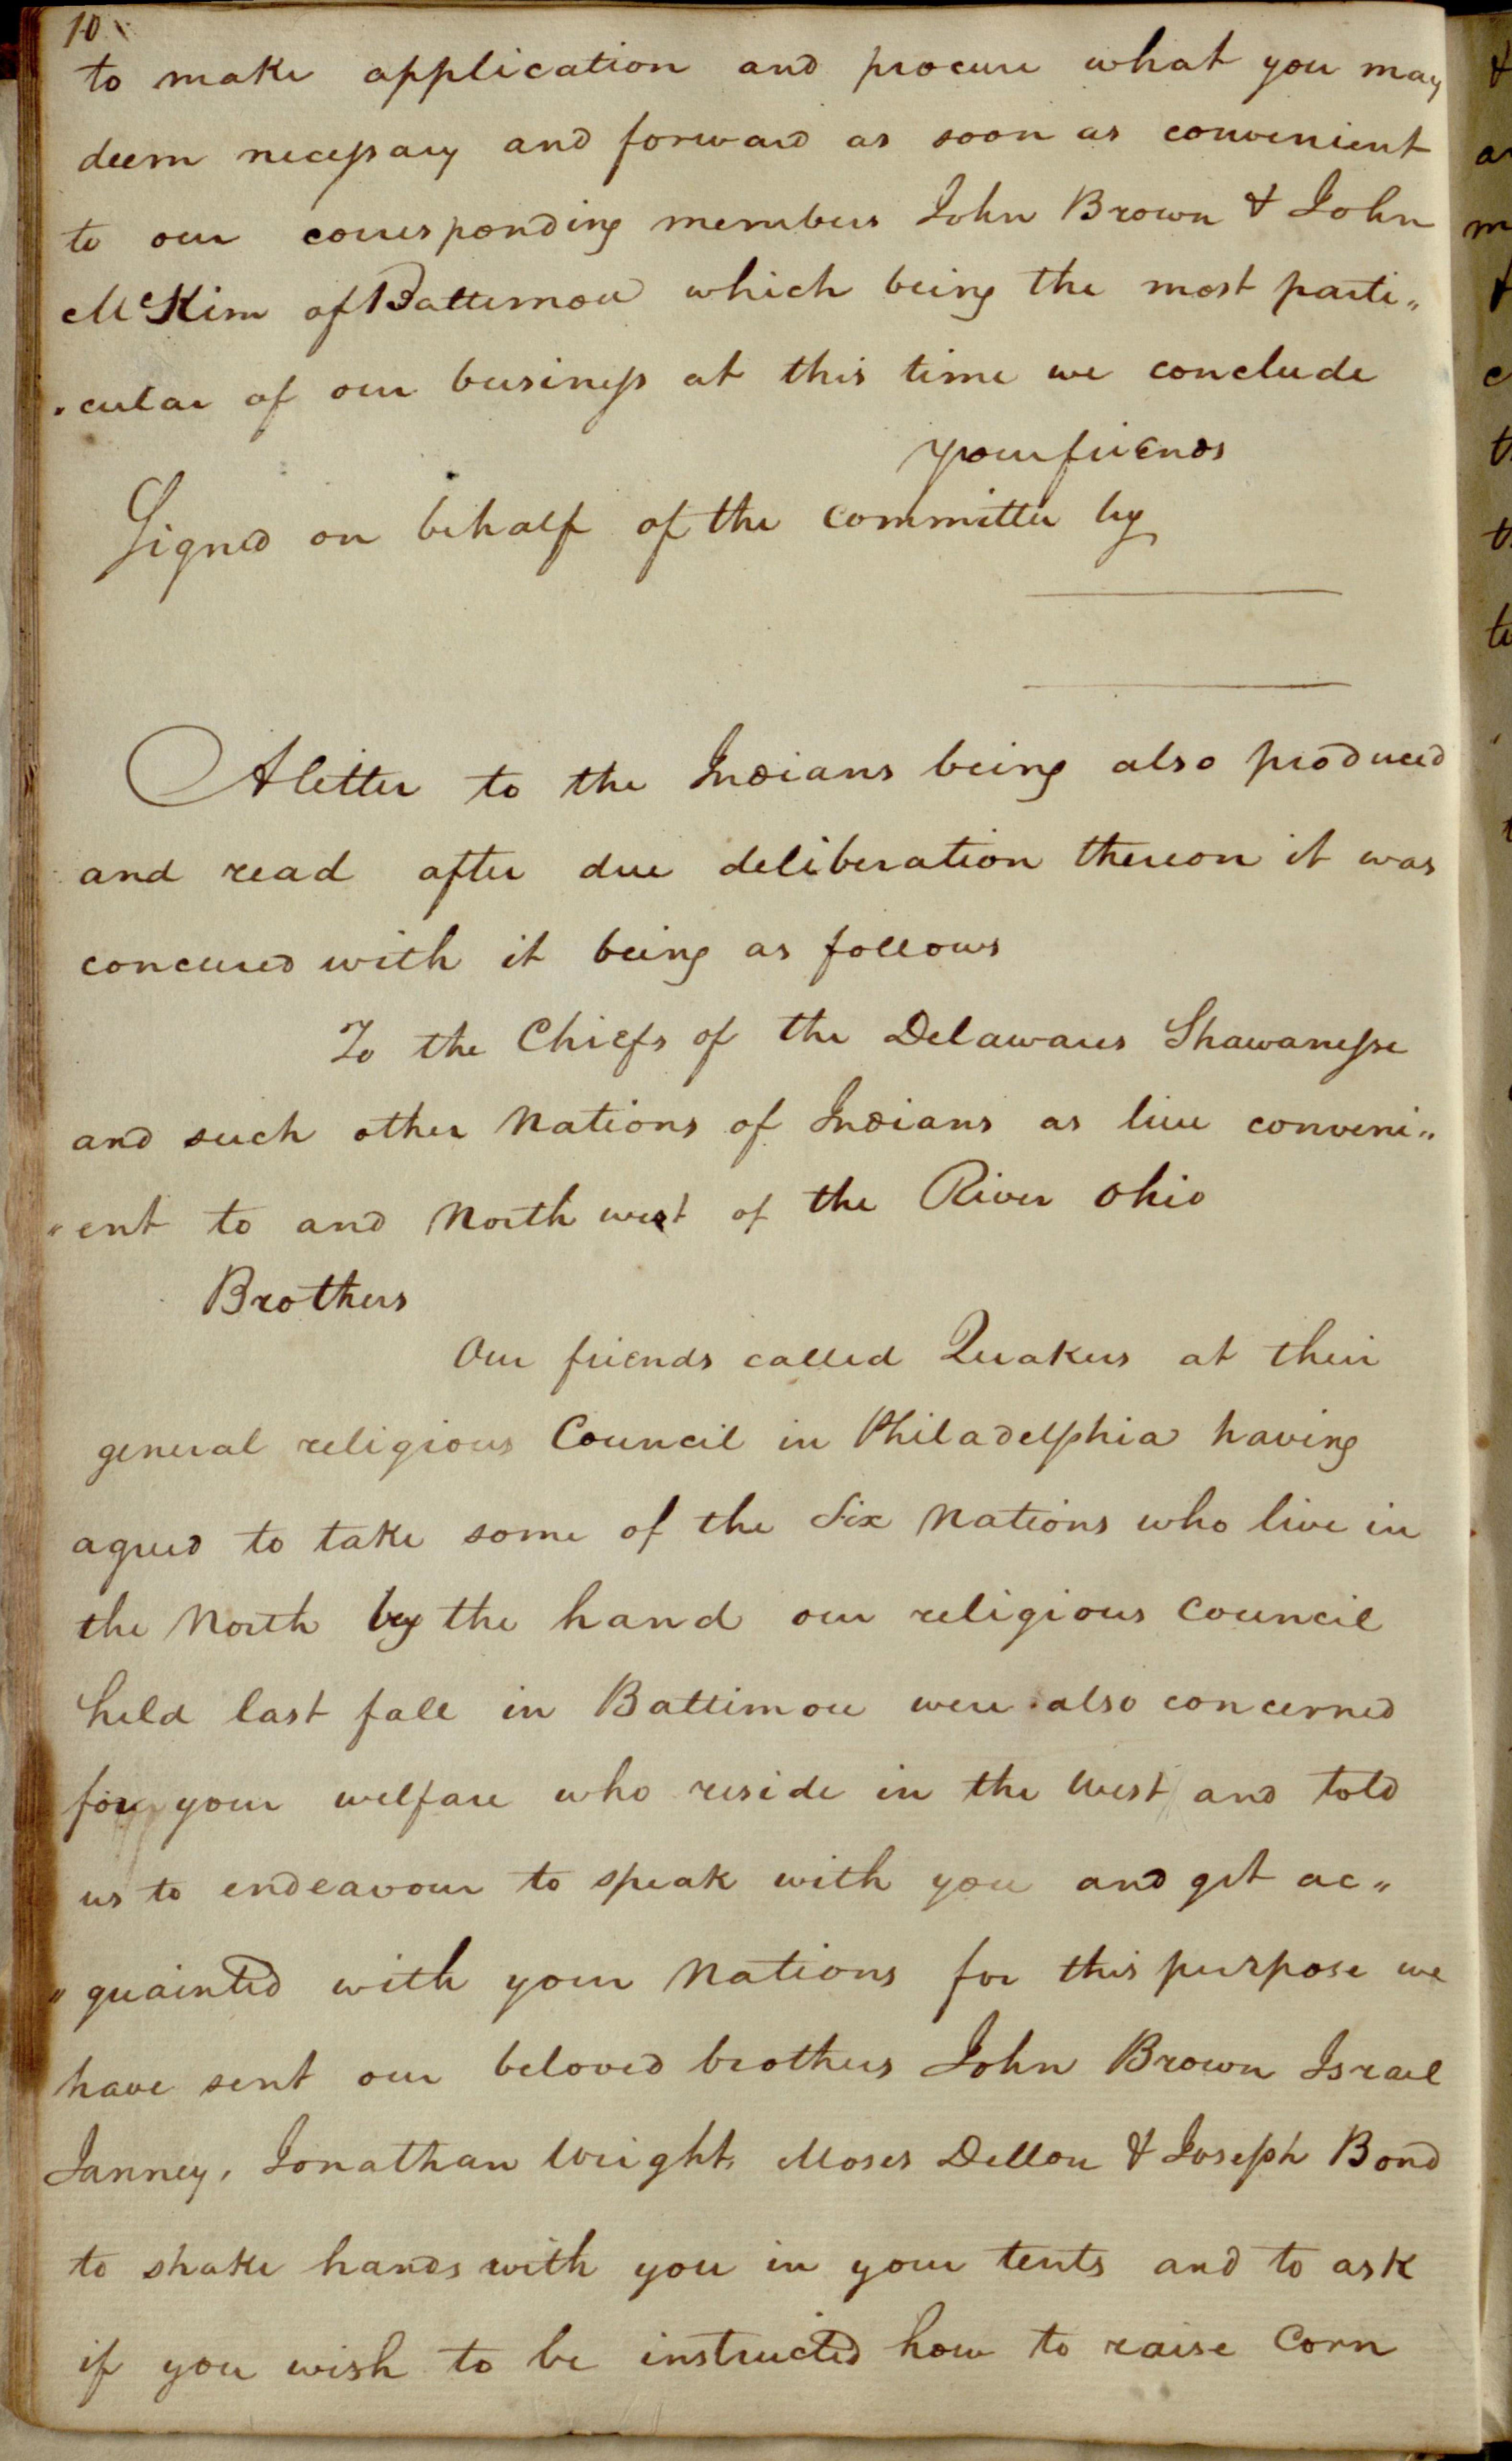 10
to make application and procure what you may
deem necessary and forward as soon as convenient
to our corresponding members John Brown & John
McKim of Baltimore which being the most parti„
„cular of our business at this time we conclude
your friends
Signed on behalf of the committee by
A letter to the Indians being also produced
and read after due deliberation thereon it was
concured with it being as follows
To the Chiefs of the Delawares Shawanesse
and such other Nations of Indians as live conveni„
„ent to and North west of the River Ohio
Brothers
Our friends called Quakers at their
general religious Council in Philadelphia having
agreed to take some of the Six Nations who live in
the North by the hand our religious Council
held last fall in Baltimore were also concerned
for your welfare who reside in the West and told
us to endeavour to speak with you and get ac„
„quainted with your Nations for this purpose we
have sent our beloved brothers John Brown Israel
Janney, Jonathan Wright, Moses Dellon & Joseph Bond
to shake hands with you in your tents and to ask
if you wish to be instructed how to raise Corn